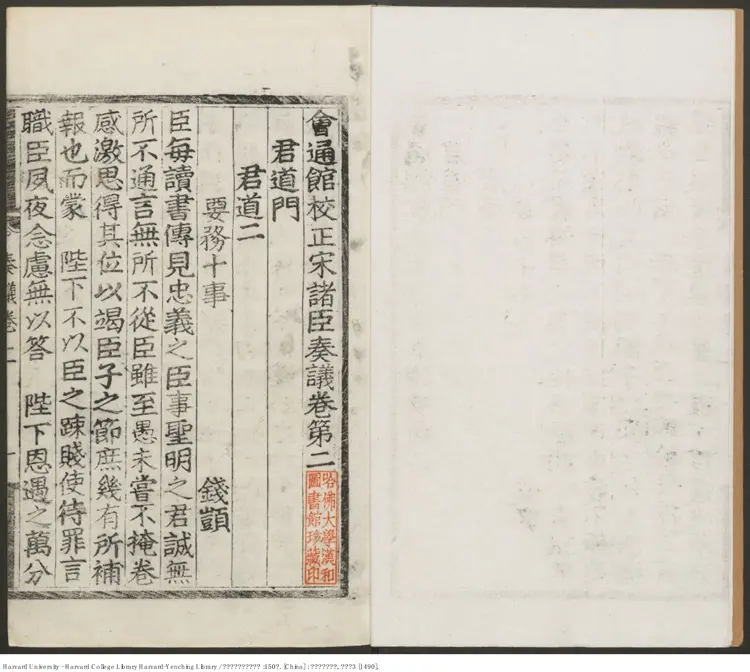 會通館校正宋諸臣奏議卷第二
哈佛大學漢和
圖書館珍藏印
君道門
君道二
要務十事 錢顗
臣每讀書傳見忠義之臣事聖明之君誠無
所不通言無所不從臣雖至愚未嘗不掩卷
感激思得其位以竭臣子之節庶幾有所補
報也而蒙 陛下不以臣之踈賤使待罪言
職臣夙夜念慮無以答 陛下恩遇之萬分
奏議卷二
Harvard University - Harvard College Library Harvard-Yenching Library / ?????????? :150?. [China] : ???????, ???3 [1490].